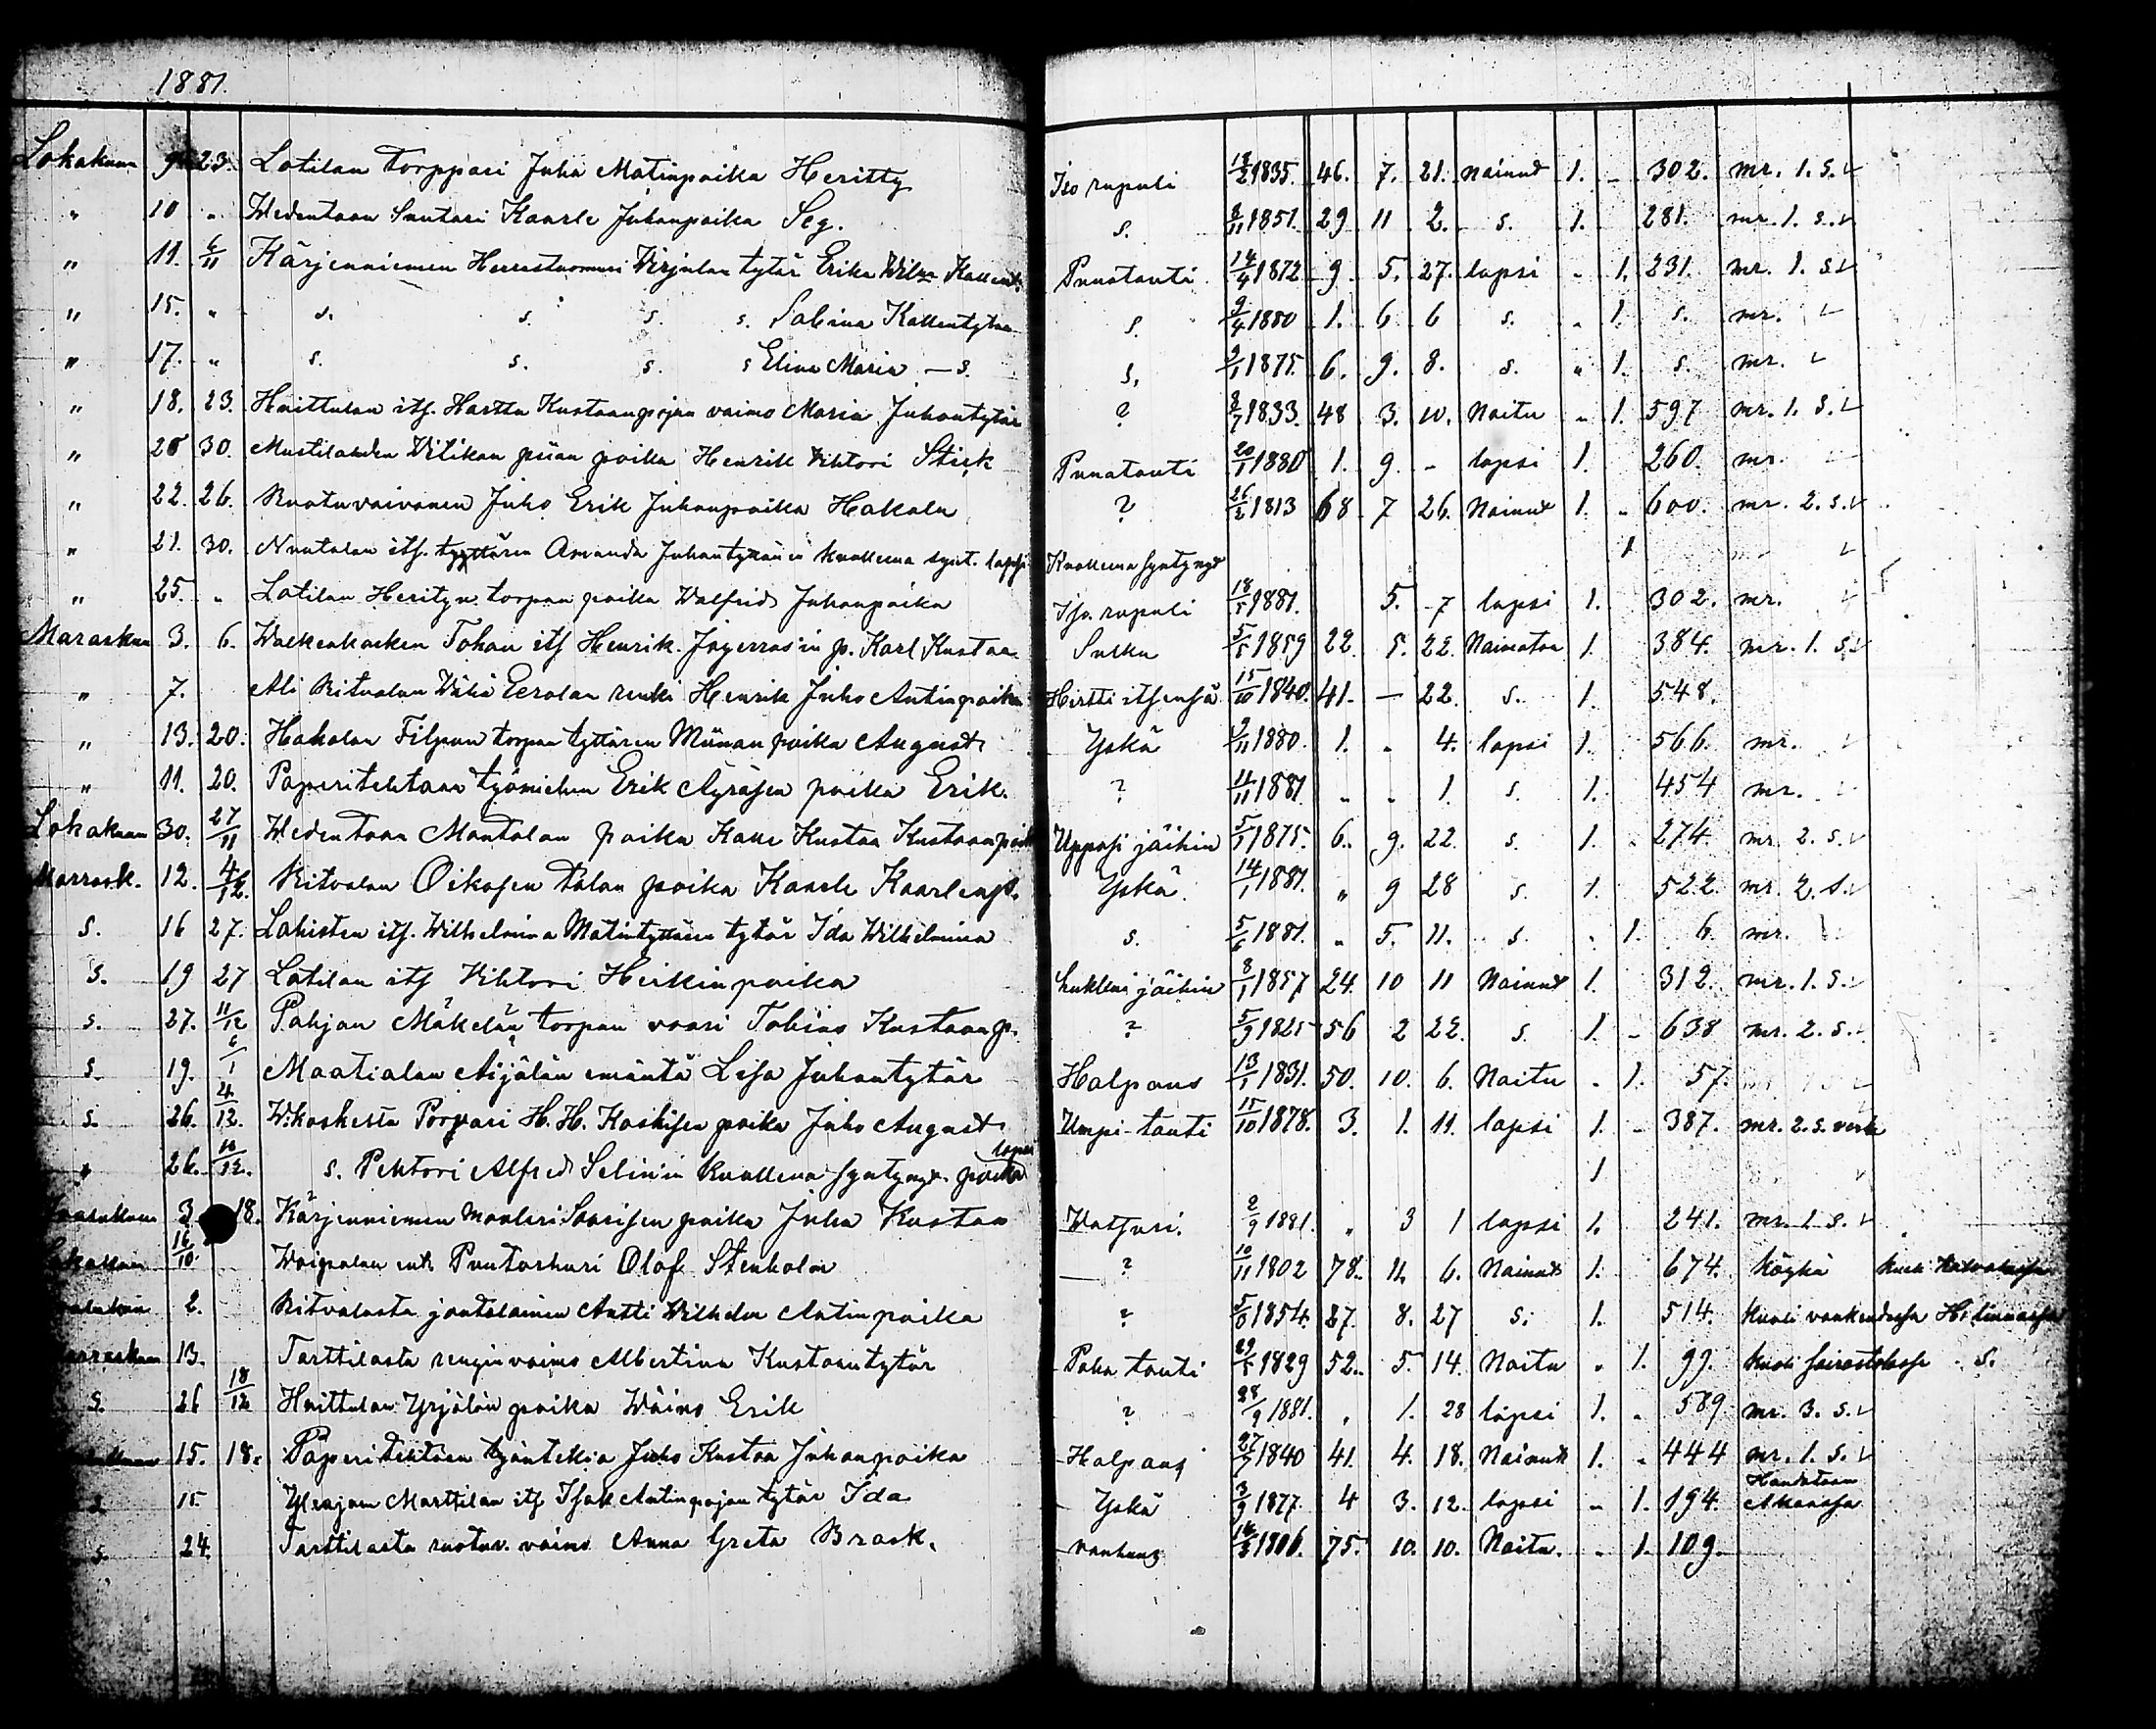 1881.
Lokakuun 9 23. Lotilan torppari Juha Matinpoika Heritty Iso rupuli 18/2 1835. 46. 7. 21. Nainut 1. - 302. mr. 1. s.
" 10 " Wedentaan Suutari Kaarle Juhanpoika Seg. s. 8/11 1851. 29 11 2. s. 1. 281. mr. 1. s.
" 11. 6/11 Kärjenniemen Herrastuomari Wirjulan tytär Erika Punatauti 14/4 1872 9. 5. 27. lapsi " 1. 231. mr. 1. s.
" 15. " s. s. s. s. Sabina Kallentytär s. 9/4 1880 1. 6. 6 s. " 1. s. mr.
" 17. " s. s. s. s Elina Maria — s. s. 9/1 1875. 6. 9. 8. s. " 1. s. mr.
" 18. 23. Huittulan its. Hartta Kustaanpojan vaimo Maria Juhantytär ? 8/7 1833. 48 3. 10. Naitu " 1. 597 mr. 1. s.
" 20 30. Mustilahden Witikan piian poika Henrik Vihtori Punatauti 20/1 1880 1. 9. - lapsi 1. 260. mr.
" 22. 26. Ruotuvaivanen Juho Erik Juhanpoika Hakala ? 26/2 1813 68 7 26. Nainut 1. " 600. mr. 2. s.
" 21. 30. Nuutalan its. tyttären Amanda Juhantyttären kuollena synt. lapsi Kuollena syntynyt 1
" 25. " Lotilan Herityn torpan poika Walfrid Juhanpoika Iso rupuli 18/5 1881. 5. 7 lapsi 1. 302. mr.
Maraskuu 3. 6. Tohan its Henrik p. Karl Kustaa 5/5 1859 22. 5. 22. Naimaton 1. 384. mr. 1. s.
" 7. Ali Ritvalan Wähä Eerolan renki Henrik Juho Antinpoika Hirtti itsensä 15/10 1840. 41. — 22. s. 1. 548.
" 13. 20. Hakalan Filpun torpan tyttären Miinan poika August Yskä 9/11 1880. 1. " 4. lapsi 1. 566. mr.
" 11. 20. Paperitehtaan työmiehen Erik Äyräsen poika Erik. ? 11/11 1881 " " 1. s. 1. 454 mr.
Lokakuun 30. 27/11 Wedentaan Mantalan poika Kalle Kustaa Kustaanpoik Upposi jäihin 5/1 1875. 6. 9. 22. s. 1. 274. mr. 2. s.
Marrask. 12. 4/12. Ritvalan Oikosen talan poika Kaarle Kaarlenp. Yskä. 14/1 1881. " 9 28 s. 1. 522. mr. 2. s.
s. 16 27. Lahisten its. Wilhelmina Matintyttären tytär Ida Wilhelmina s. 5/6 1881. " 5. 11. s. " 1. 6. mr.
s. 19 27 Lotilan its Vihtori Heikinpoika hukkui jäihin 8/1 1857 24. 10 11 Nainut 1. 312. mr. 1. s.
s. 27. 11/12 Pohjan Mäkelän torpan vaari Tobias Kustaanp. ? 5/9 1825 56 2 22. s. 1. - 638 mr. 2. s.
s. 19. 6/1 Maatialan Äijälän emäntä Lisa Juhantytär Halpaus 13/1 1831. 50. 10. 6. Naitu " 1. 57.
s. 26. 4/12. W:koskella Porvari H. H. Koskisen poika Juho August Umpi-tauti 15/10 1878. 3. 1. 11. lapsi 1. - 387. mr. 2. s.
26. /12. s. Pehtori Alfred Selinin kuollena syntynyt poika lapsi 1
3. 18. Kärjenniemen Saarisen poika Juha Kustaa Watsuri. 2/9 1881. " 3 1 lapsi 1. 241. mr. 1 s.
16/10. Woipalan ent. Puutarhuri Olof Stenholm ? 10/11 1802 78. 11. 6. Nainut 1. 674. köyhä kuoli
2. Ritvalasta joutolainen Antti Wilhelm Antinpoika ? 1854. 27. 8. 27 s. 1. 514. kuoli vankeudessa H: linnassa
13. Tarttilasta rengin vaimo Albertina Kustaantytär Paha tauti 29/5 1829 52. 5. 14. Naitu " 1. 99. kuoli s.
s. 26 18/12 Huittulan Yrjölän poika Wäino Erik ? 28/9 1881. " 1. 28 lapsi 1. " 589 mr. 3. s.
15. 18. Paperitehtaan työntekiä Juho Kustaa Juhanpoika Halpaus 27/7 1840 41. 4. 18. Nainut 1. " 444 mr. 1. s.
s. 15. Ylenjoen Marttilan its Isak Antinpojan tytär Ida Yskä 3/9 1877. 4 3. 12. lapsi " 1. 194. Haudataan Akaassa
s. 24. Tarttilasta ruotuv. vaimo Anna Greta Brask. vanhuus 14/2 1806. 75. 10. 10. Naitu. " 1. 109.